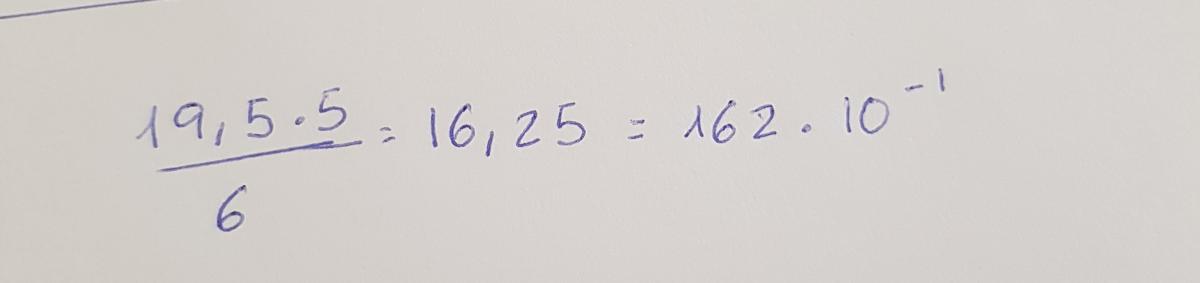 19,5·5/6 = 16,25 = 162·10⁻¹